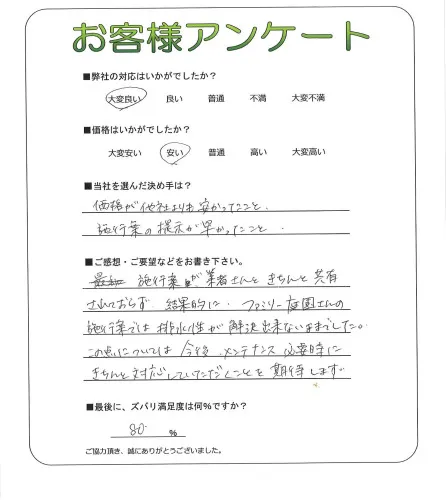 お客様アンケート
■弊社の対応はいかがでしたか？
大変良い 良い 普通 不満 大変不満
■価格はいかがでしたか？
大変安い 安い 普通 高い 大変高い
■当社を選んだ決め手は？
価格が他社よりも安かったこと.
施行案の提示が早かったこと.
■ご感想・ご要望などをお書き下さい。
施行案が業者さんときちんと共有
されておらず 結果的に、ファミリー庭園さんの
施行案では排水性が解決出来ないままでした。
この点については今後、メンテナンス必要時に
きちんと対応していただくことを期待します。
■最後に、ズバリ満足度は何%ですか？
80 %
ご協力頂き、誠にありがとうございました。